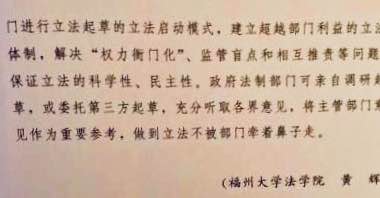 门进行立法起草的立法启动模式，建立超越部门利益的立法
体制，解决“权力衙门化”、监管盲点和相互推责等问题
保证立法的科学性、民主性。政府法制部门可亲自调研起
草，或委托第三方起草，充分听取各界意见，将主管部门意
见作为重要参考，做到立法不被部门牵着鼻子走。
(福州大学法学院 黄 辉